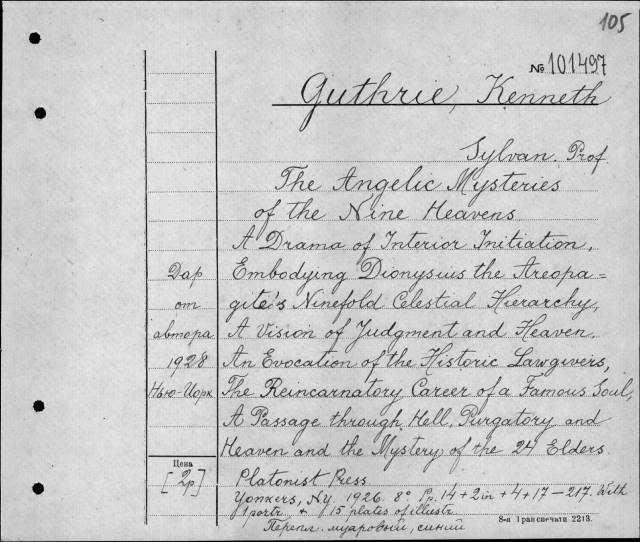 105
№ 101497
Guthrie, Kenneth
Sylvan. Prof.
The Angelic Mysteries
of the Nine Heavens
A Drama of Interior Initiation,
Embodying Dionysius the Areopa=
gite's Ninefold Celestial Hierarchy,
A Vision of Judgment and Heaven,
An Evocation of the Historic Lawgivers,
The Reincarnatory Career of a Famous Soul,
A Passage through Hell, Purgatory and
Heaven and the Mystery of the 24 Elders.
Дар
от
автора
1928
Нью-Йорк
Цена
[2р]
Platonist Press
Yonkers, Ny. 1926. 8° Pp. 14+2in+4+17-217. With
1 portr. + 15 plates of illustr.
Перепл. муаровый, синий
8-я Транспечати 2213.